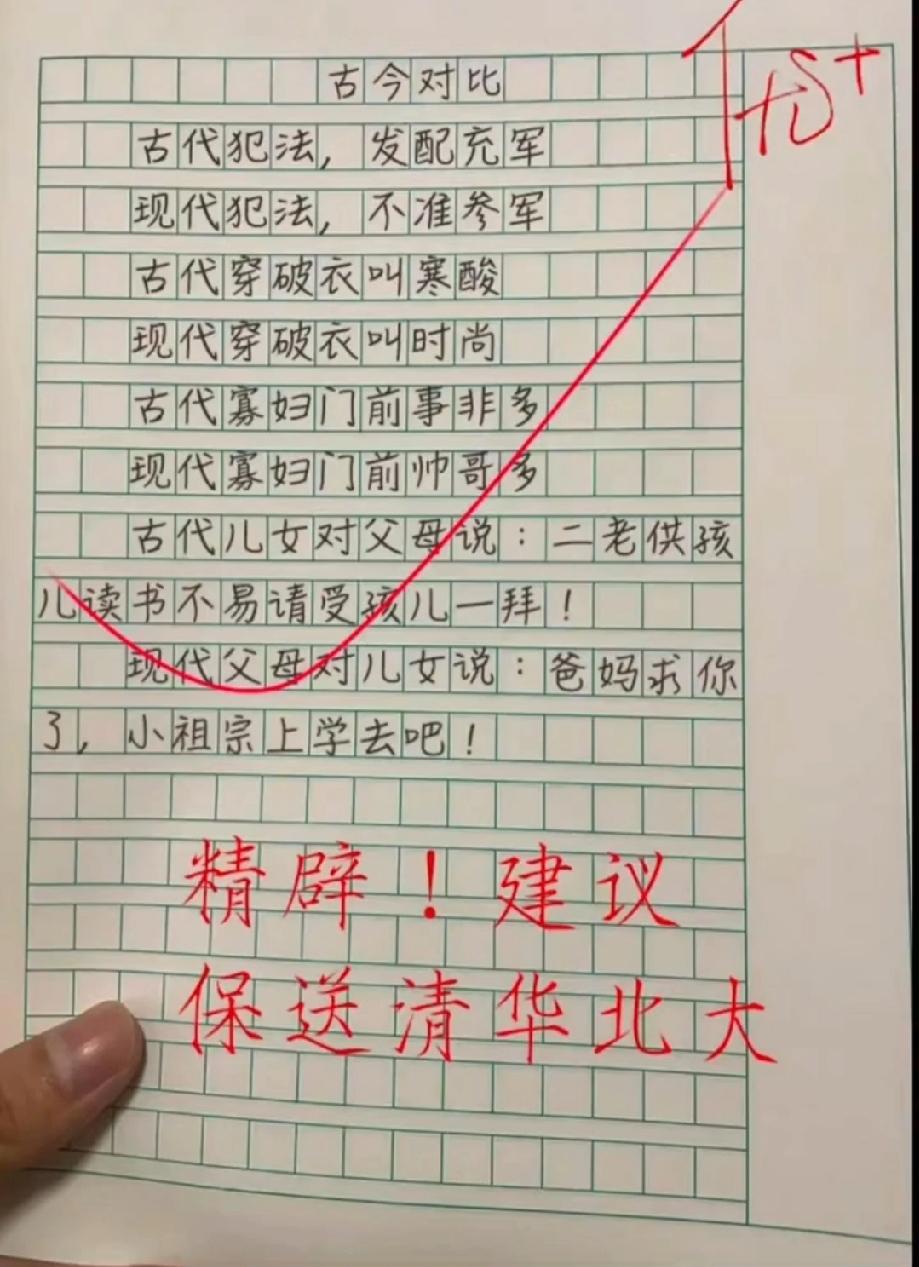 古今对比
优+
古代犯法，发配充军
现代犯法，不准参军
古代穿破衣叫寒酸
现代穿破衣叫时尚
古代寡妇门前事非多
现代寡妇门前帅哥多
古代儿女对父母说：二老供孩
儿读书不易请受孩儿一拜！
现代父母对儿女说：爸妈求你
了，小祖宗上学去吧！
精辟！建议
保送清华北大